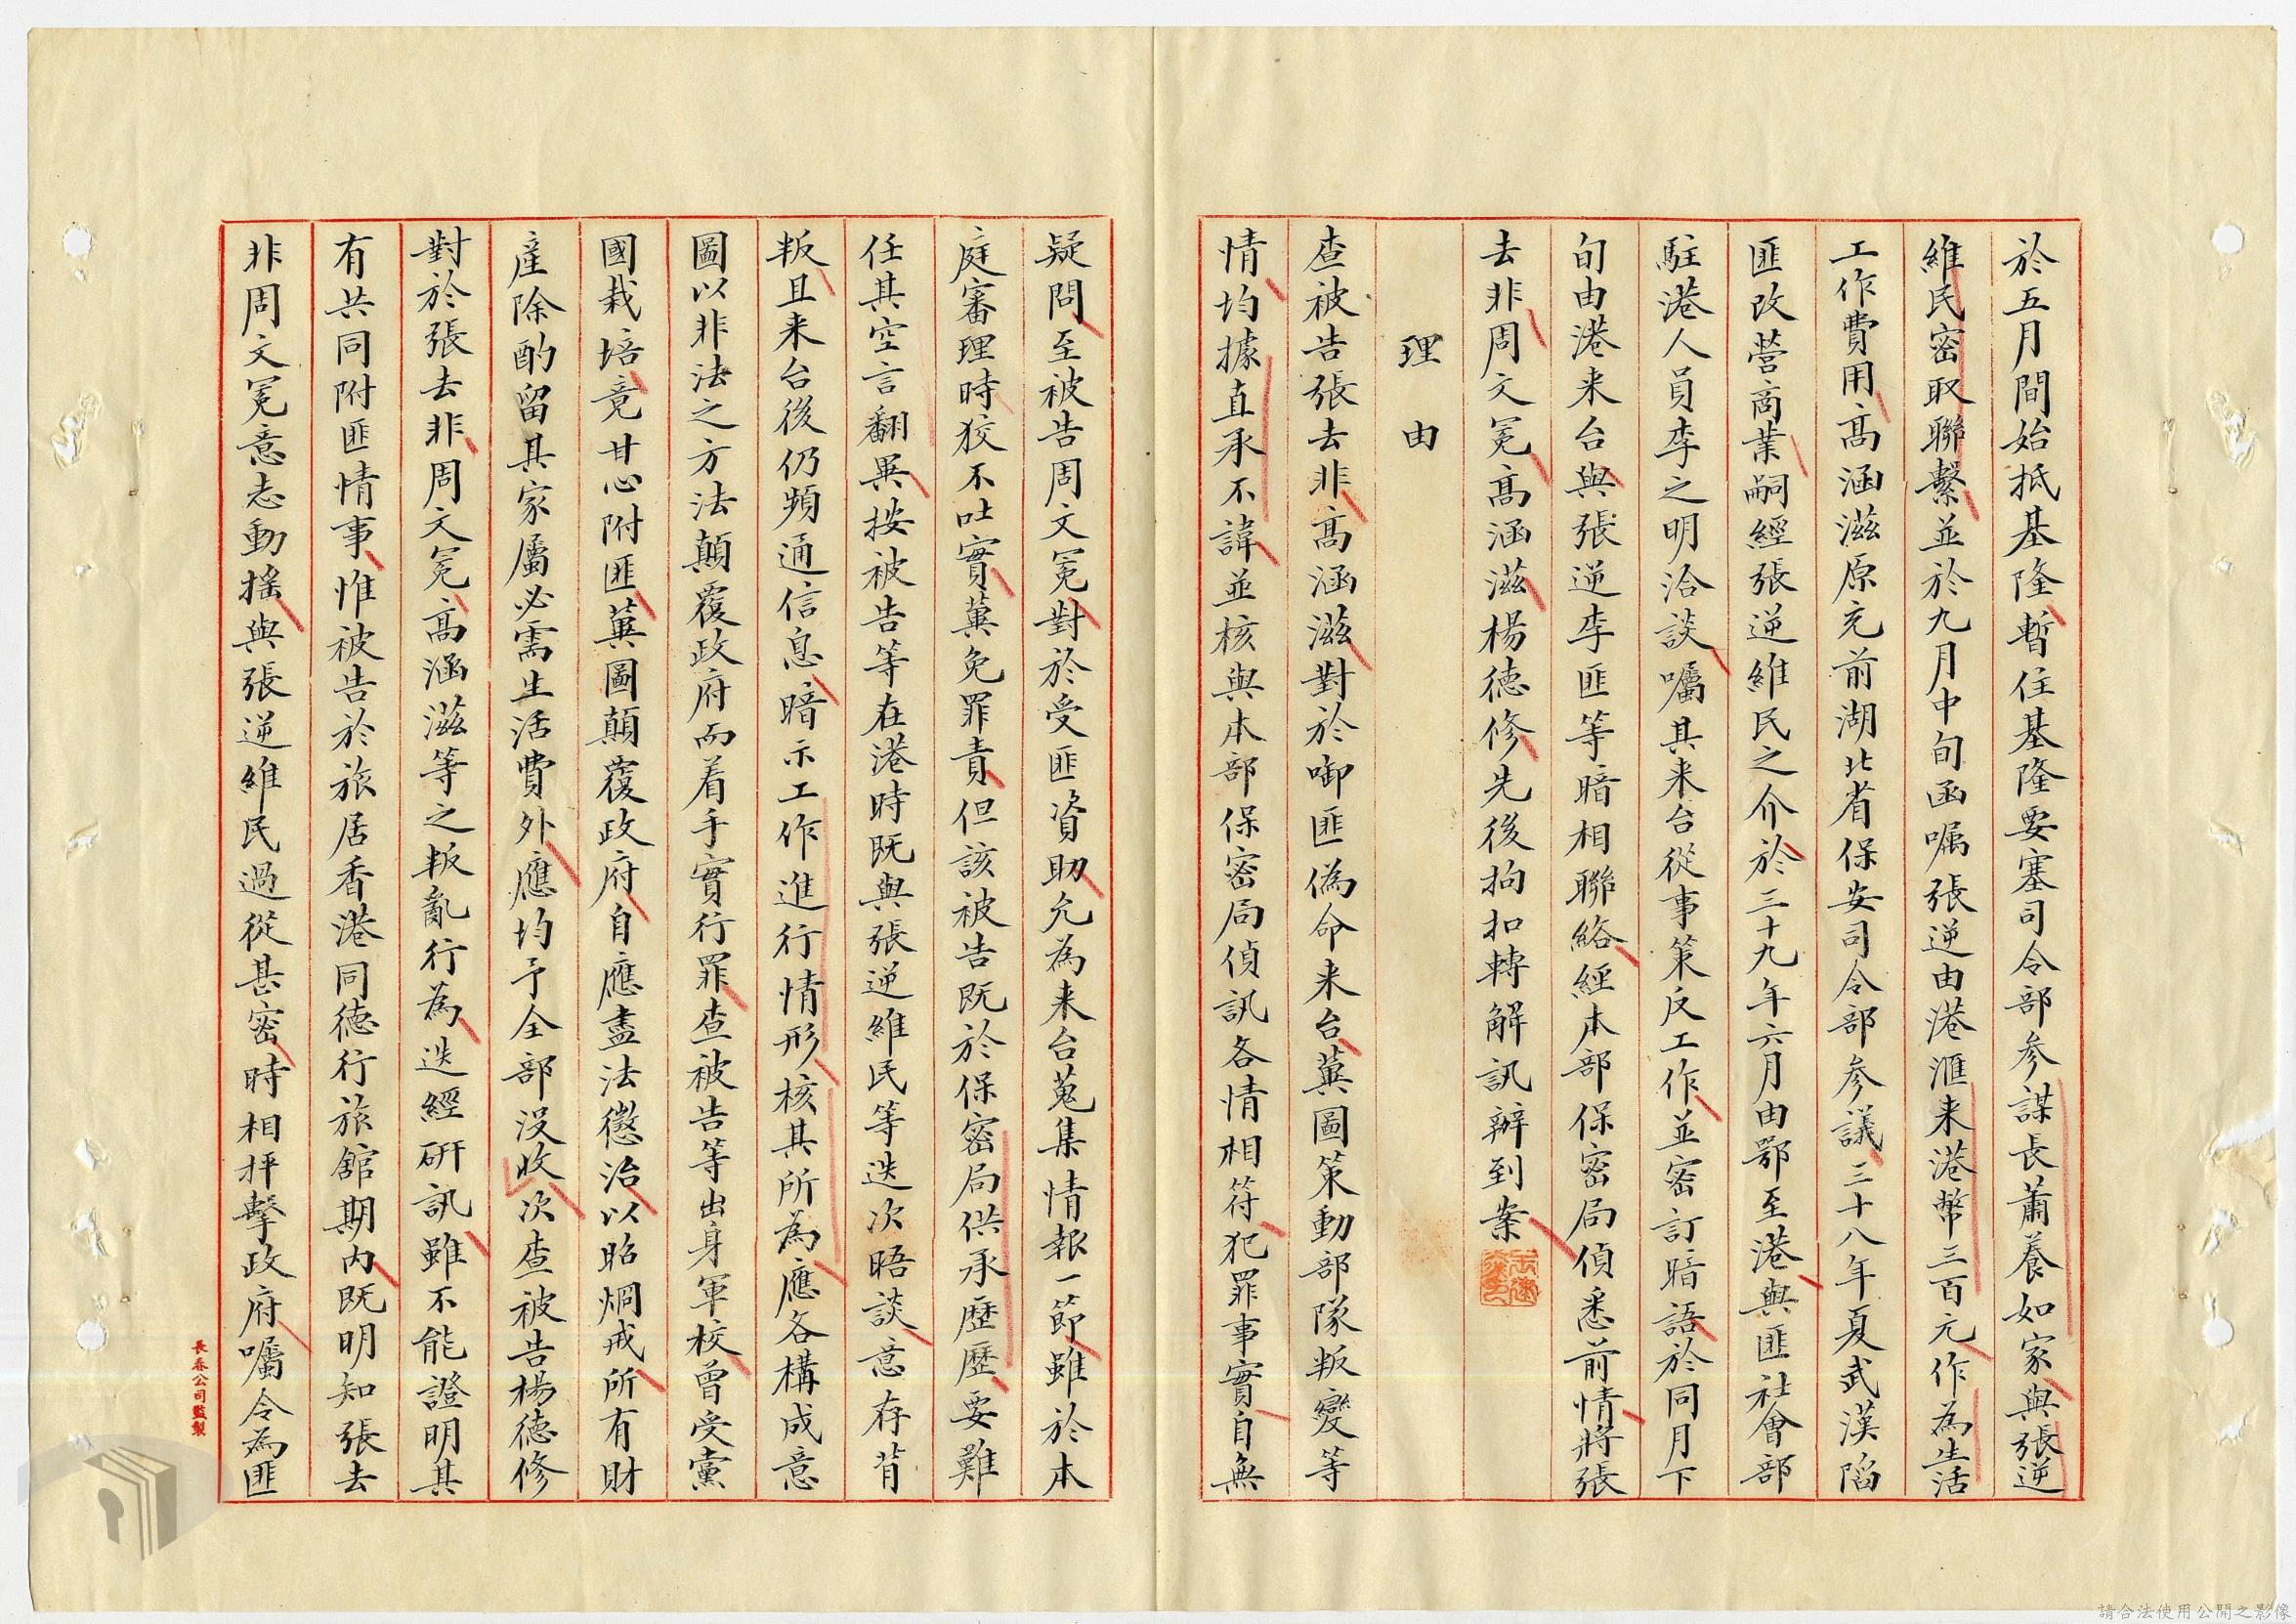 於五月間始抵基隆暫住基隆要塞司令部參謀長蕭養如家與張逆
維民密取聯繫並於九月中旬函嘱張逆由港滙来港幣三百元作為生活
工作費用高涵滋原充前湖北省保安司令部參議三十八年夏武漢陷
匪改營商業嗣經張逆維民之介於三十九年六月由鄂至港與匪社會部
駐港人員李之明洽談囑其来台從事策反工作並密訂暗語於同月下
旬由港来台與張逆李匪等暗相聯絡經本部保密局偵悉前情將張
去非周文冕高涵滋楊德修先後拘扣轉解訊辦到案
理由
查被告張去非高涵滋對於啣匪偽命来台冀圖策動部隊叛變等
情均據直承不諱並核與本部保密局偵訊各情相符犯罪事實自無
疑問至被告周文冕對於受匪資助允為来台蒐集情報一節雖於本
庭審理時狡不吐實冀免罪責但該被告既於保密局供承歷歷要難
任其空言翻異按被告等在港時既與張逆維民等迭次晤談意存背
叛且来台後仍頻通信息暗示工作進行情形核其所為應各構成意
圖以非法之方法顛覆政府而着手實行罪查被告等出身軍校曾受黨
國栽培竟甘心附匪冀圖顛覆政府自應盡法懲治以昭烱戒所有財
產除酌留其家屬必需生活費外應均予全部没收次查被告楊德修
對於張去非周文冕高涵滋等之叛亂行為迭經研訊雖不能證明其
有共同附匪情事惟被告於旅居香港同德行旅舘期内既明知張去
非周文冕意志動搖與張逆維民過從甚密時相抨擊政府囑令為匪
長春公司監製
請合法使用公開之影像